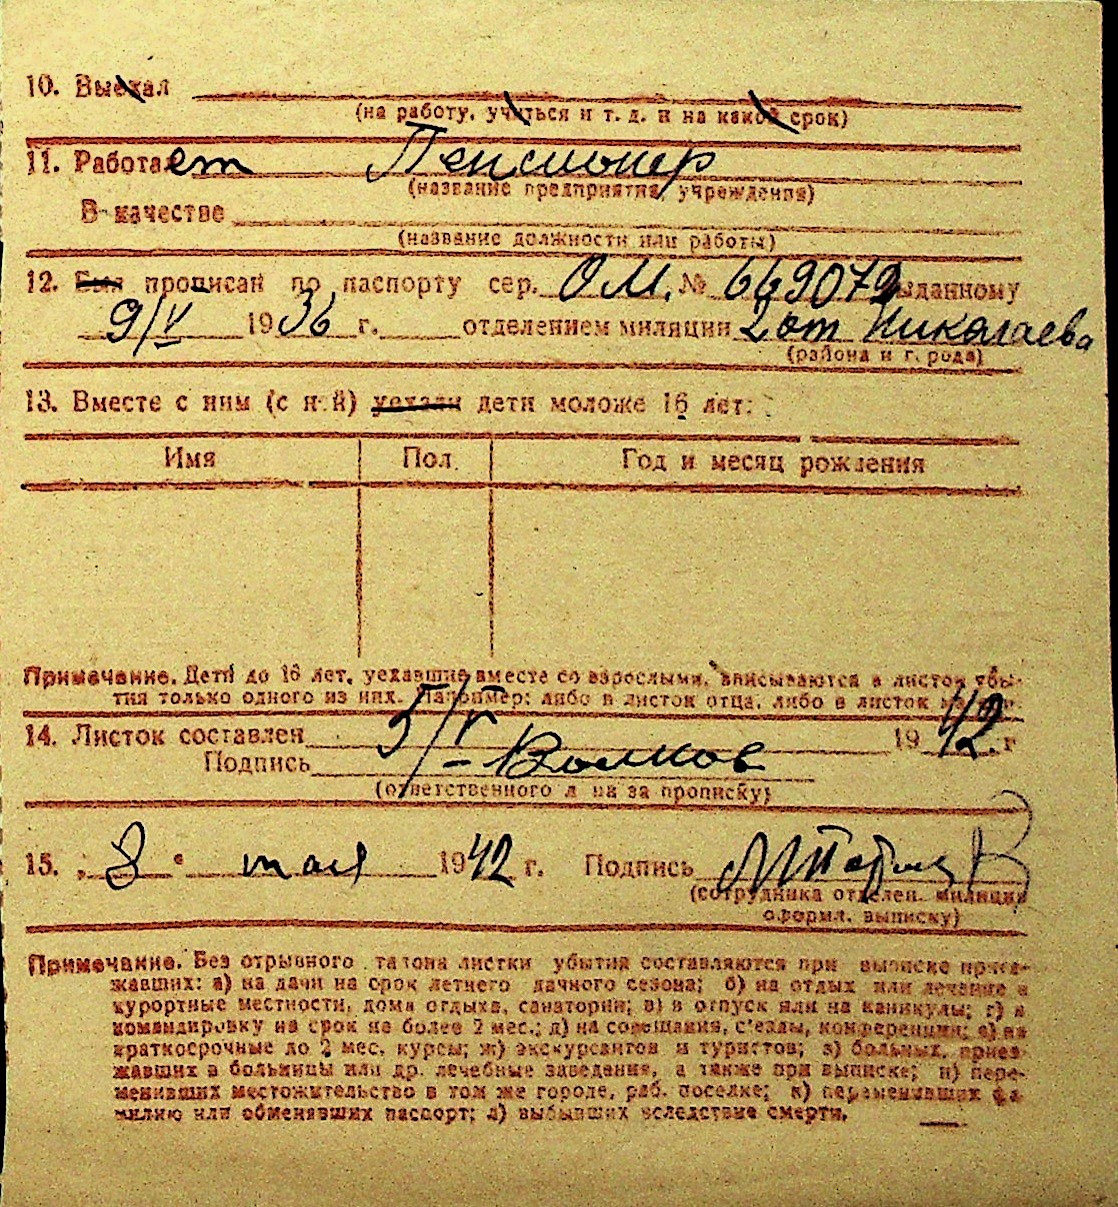 10. Выехал
(на работу, учиться и т. д. и на какой срок)
11. Работает Пенсионер
(название предприятия, учреждения)
В качестве
(название должности или работы)
12. Был прописан по паспорту сер. О М. № 669079 выданному
9/V 1936 г. отделением милиции 2 от Николаева
(района и г. рода)
13. Вместе с ним (с н.й) уехали дети моложе 16 лет:
Имя Пол Год и месяц рождения
Примечание. Дети до 16 лет, уехавшие вместе со взрослыми, вписываются в листок убы-
тия только одного из них. Например: либо в листок отца, либо в листок
14. Листок составлен 5/V 1942 г
Подпись Волков
(ответственного л на за прописку)
15. „8“ мая 1942 г. Подпись
(сотрудника отделен. милиции
оформл. выписку)
Примечание. Без отрывного талона листки убытия составляются при выписке приез-
жавших: а) на дачи на срок летнего дачного сезона; б) на отдых или лечение в
курортные местности, дома отдыха, санатории; в) в отпуск или на каникулы; г) в
командировку на срок не более 2 мес.; д) на совещания, с'езды, конференции; е) на
краткосрочные до 2 мес. курсы; ж) экскурсантов и туристов; з) больных, приез-
жавших в больницы или др. лечебные заведения, а также при выписке; и) пере-
менивших местожительство в том же городе, раб. поселке; к) переменивших фа-
милию или обменявших паспорт; л) выбывших вследствие смерти.